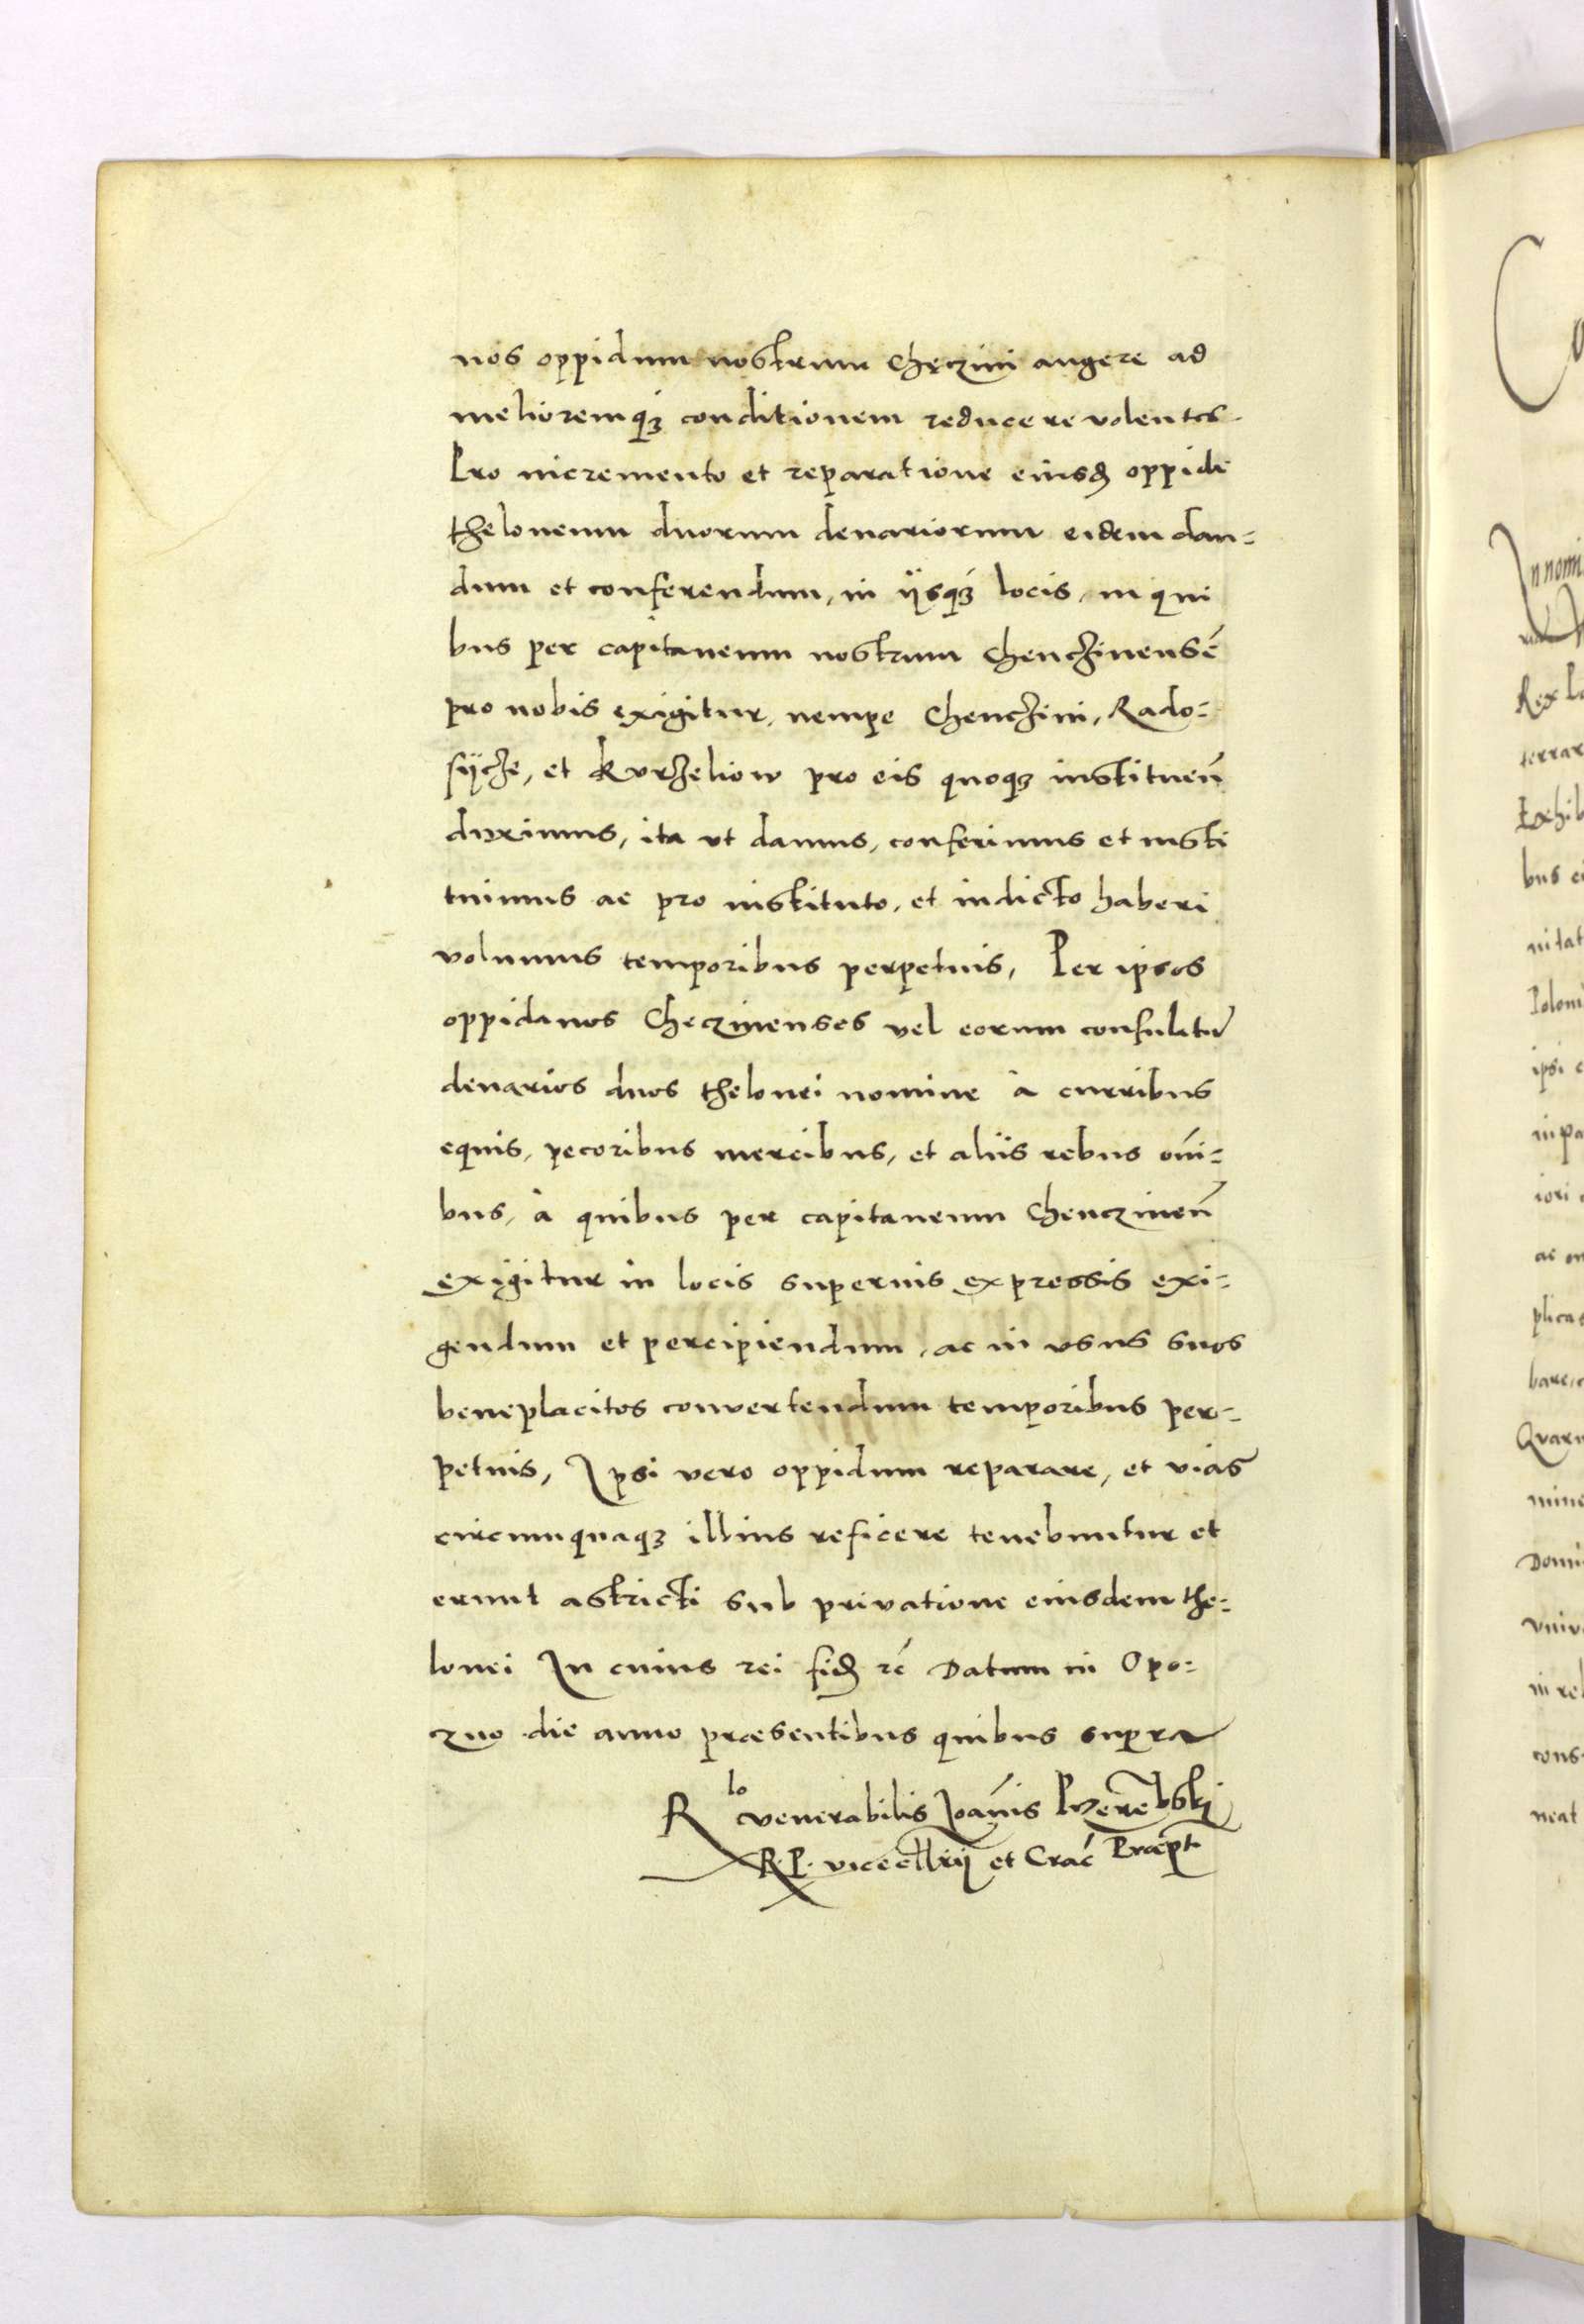 nos oppidum nostrum Chęczini augere ad
melioremq3 conditionem reducere volentes.
Pro incremento et reparatione eiusd oppidi
theloneum duorum denariorum eidem dan=
dum et conferendum, in ijsq3 locis, in qui
bus per capitaneum nostrum Chenczinensē
pro nobis exigitur, nempe Chenczini, Rado=
sijcze, et Kurzeliow pro eis quoq3 instituen̄
duximus, ita vt damus, conferimus et insti
tuimus ac pro instituto, et indicto haberi
volumus temporibus perpetuis, Per ipsos
oppidanos Checzinenses vel eorum consulatū
denarios duos thelonei nomine à curribus
equis, pecoribus mercibus, et aliis rebus om̄i=
bus, à quibus per capitaneum Chenczinen̄
exigitur in locis superius expressis exi=
gendum et percipiendum, ac in vsus suos
beneplacitos convertendum temporibus per=
petuis, Ipsi vero oppidum reparare, et vias
circumquaq3 illius reficere tenebuntur et
erunt astricti sub privatione eiusdem the=
lonei In cuius rei fid rē Datum in Opo=
czno die anno præsentibus quibus supra
R lo venerabilis Joan̄is Przerembskj
R. P. vicecllrij et Crac̄ Præpt
Rex
terrar
Exhib
bus
nitat
Poloni
ipsi
iori
plicas
bare
Quaru
Domi
cons
neat